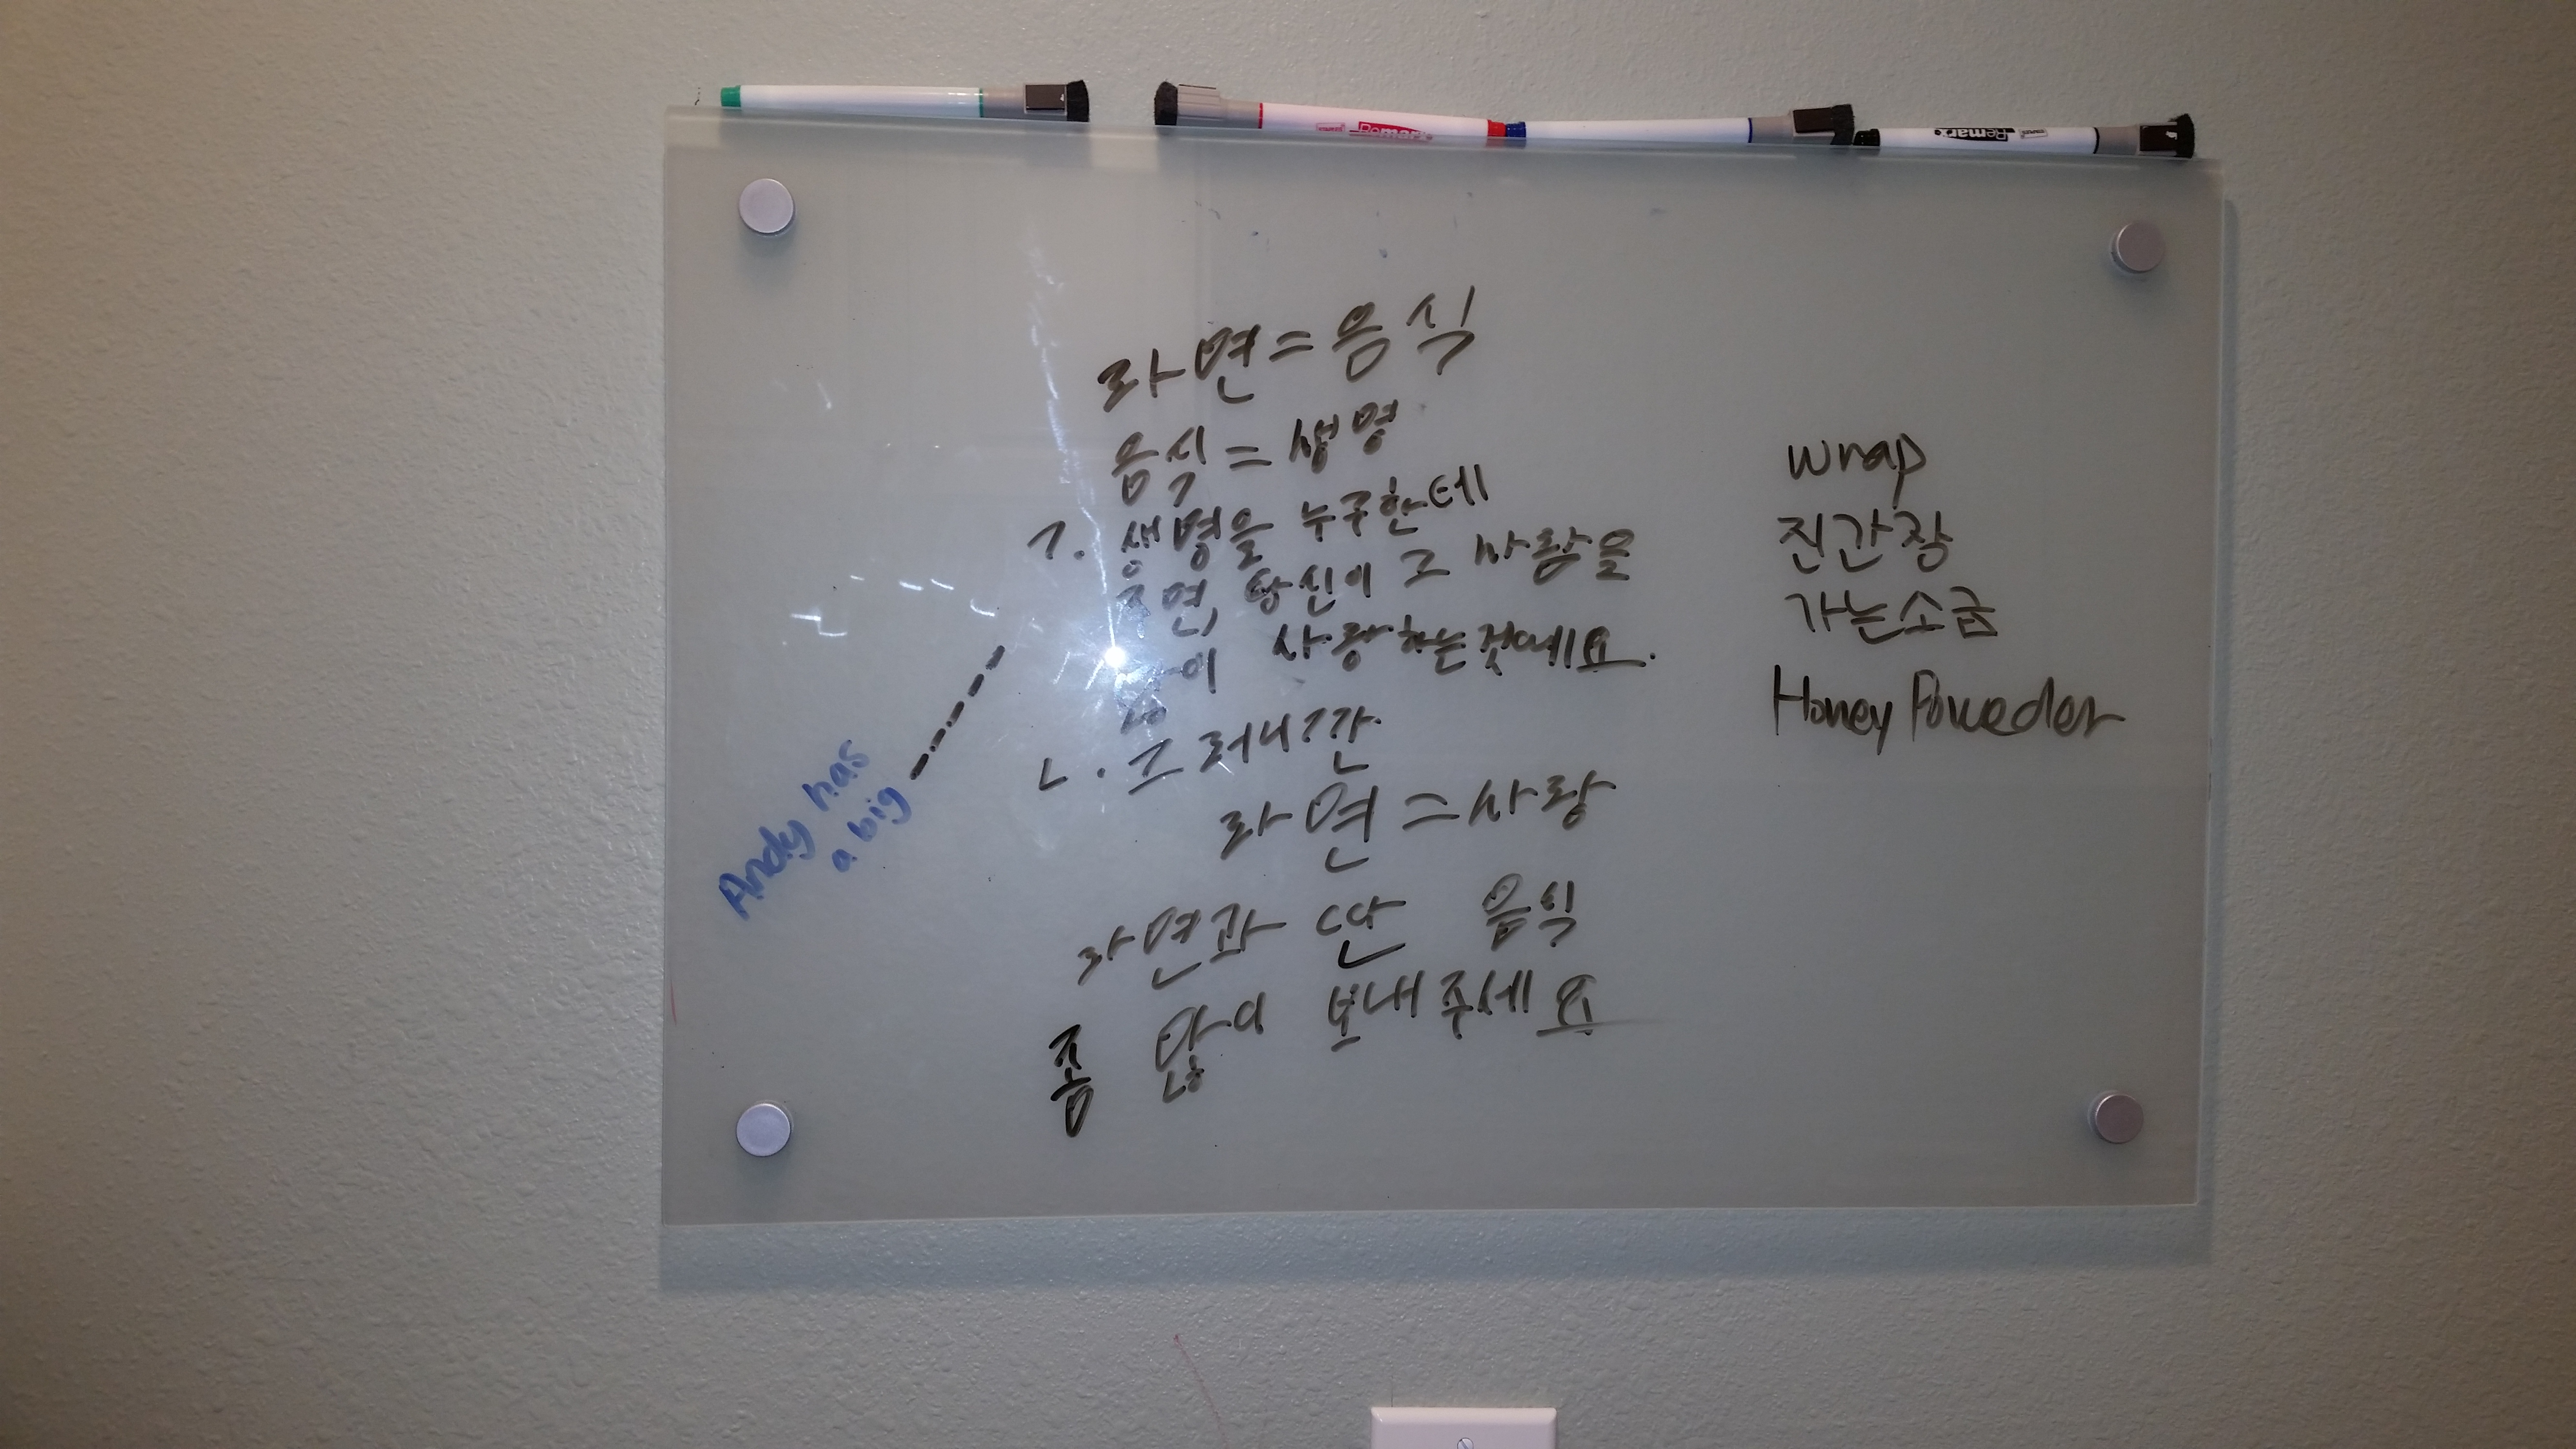 라면=음식
음식=생명
ㄱ. 생명을 누구한테
주면, 당신이 그 사람을
많이 사랑하는것이에요.
ㄴ. 그러니깐
라면=사랑
라면과 딴 음식
좀 많이 보내주세요
wrap
진간장
가는소금
Honey Poweder
Andy has
a big
Remark
Remark